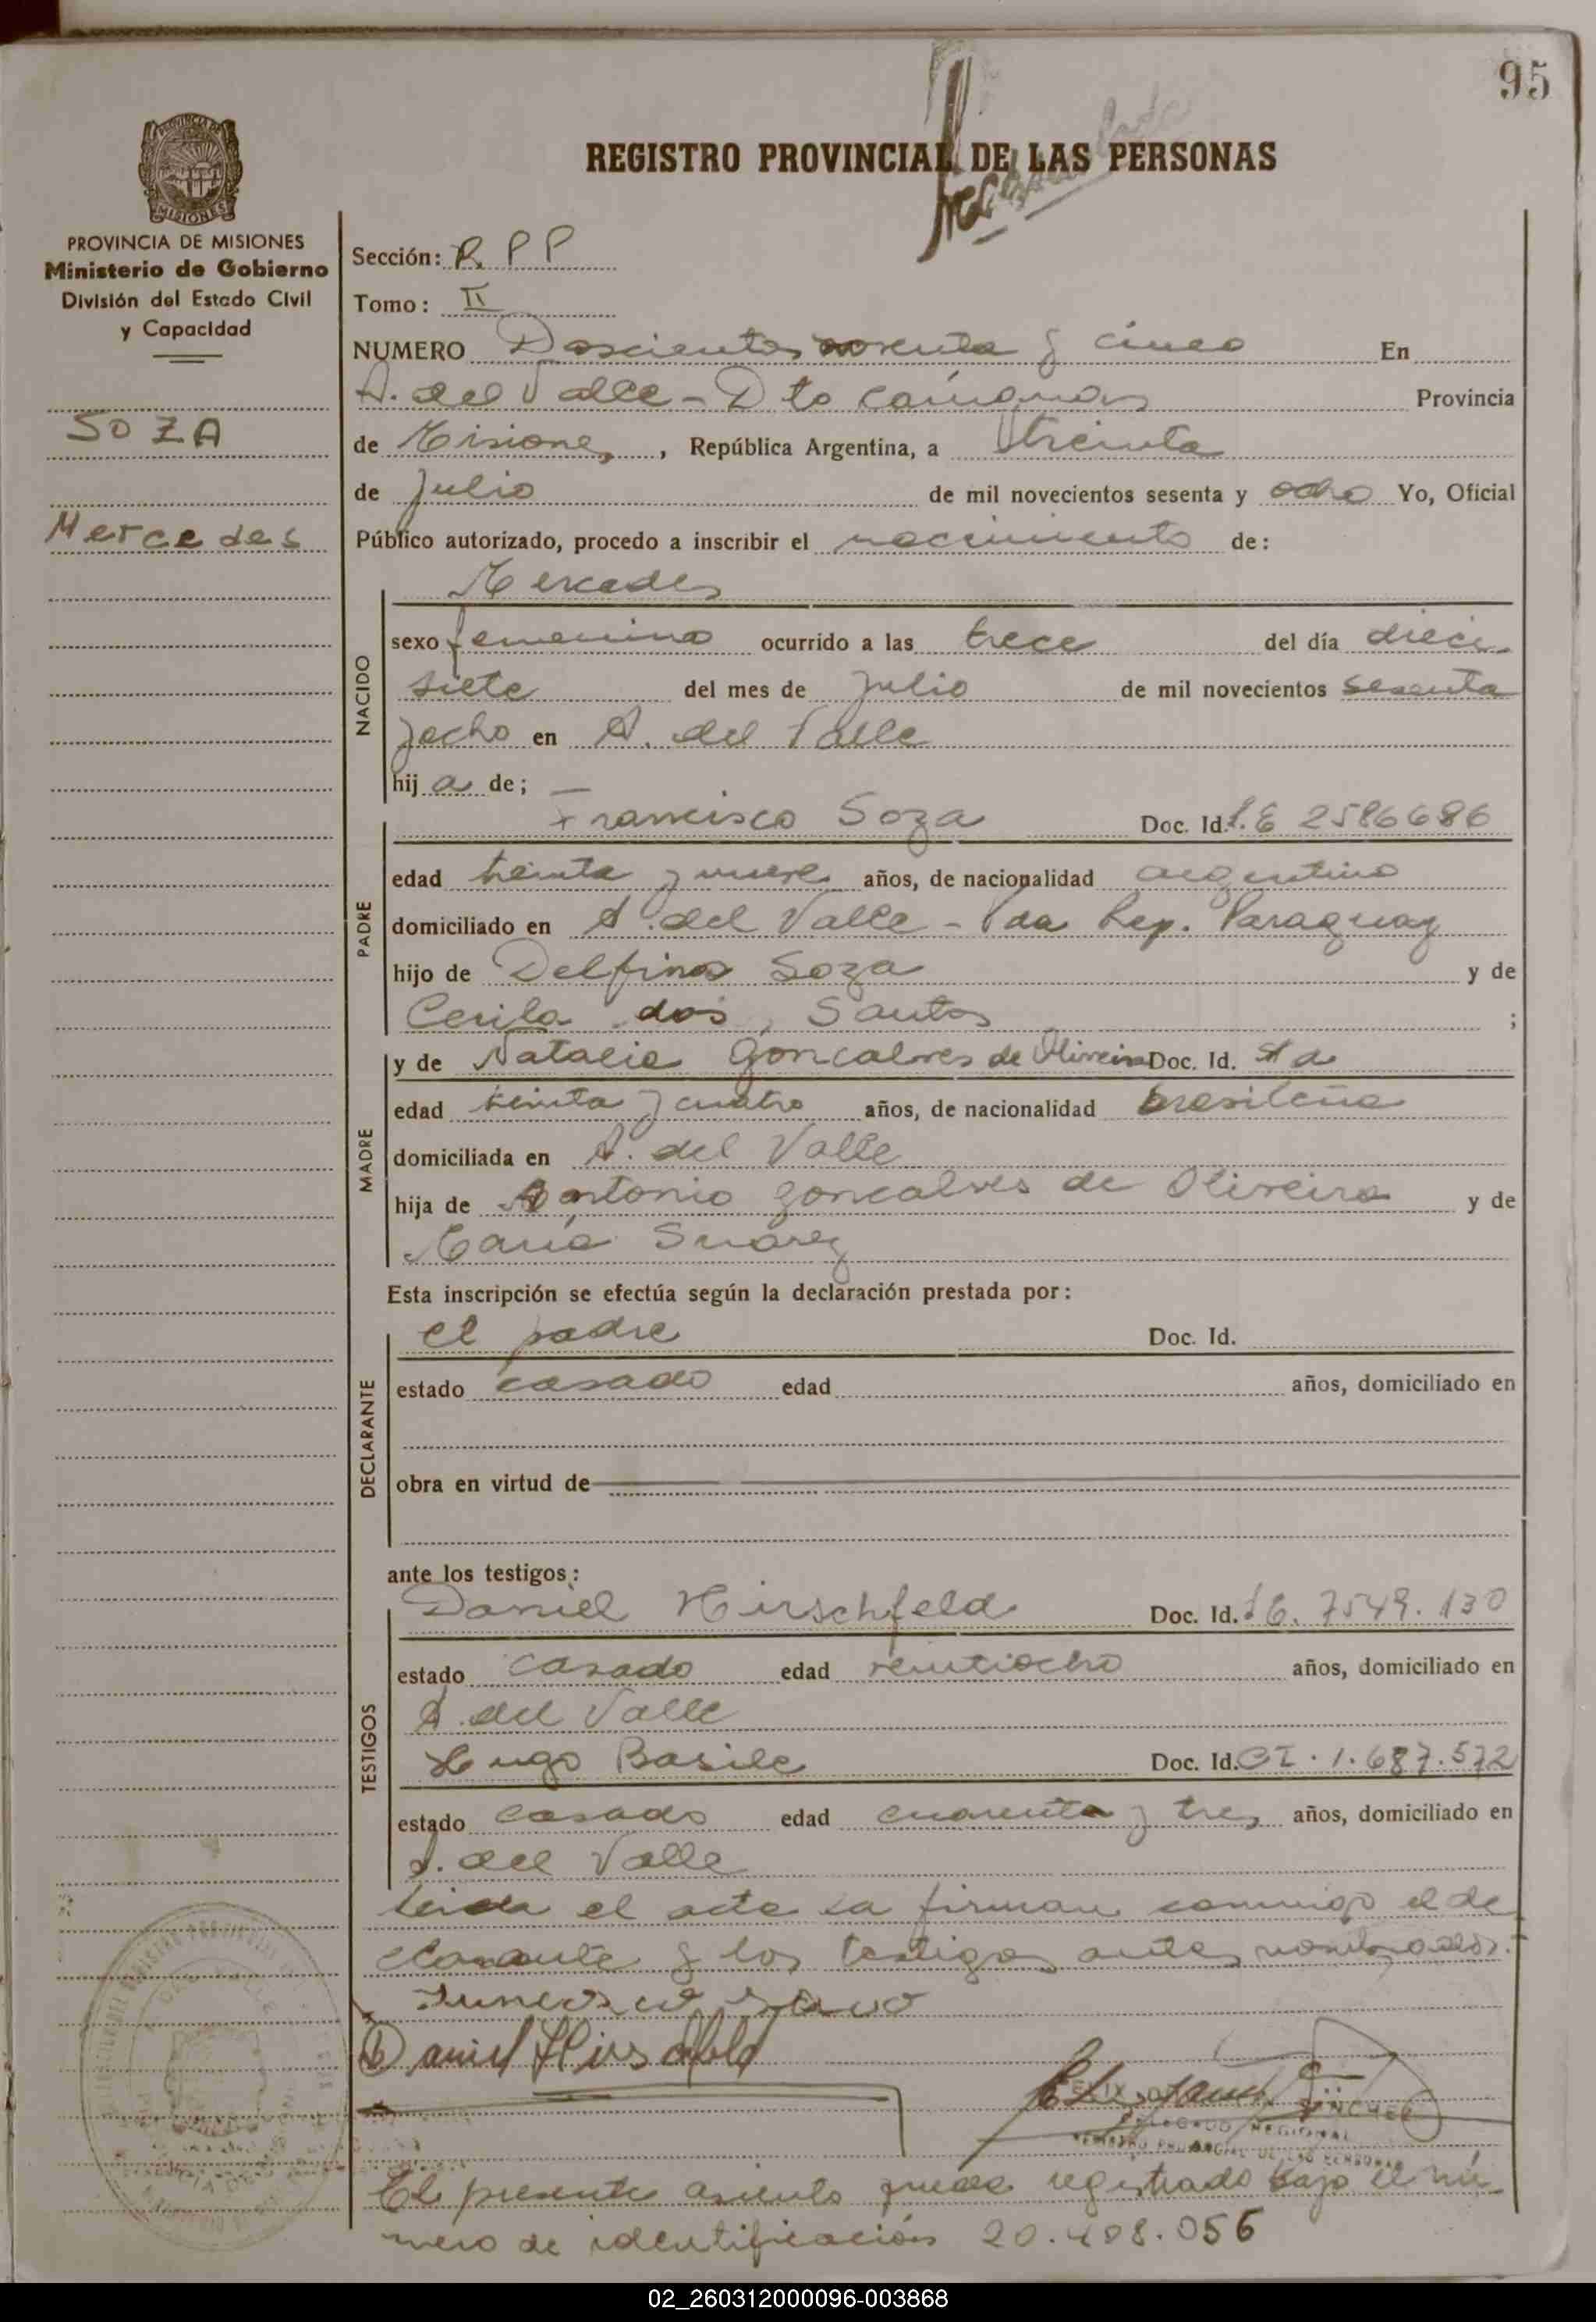 95
REGISTRO PROVINCIAL DE LAS PERSONAS
PROVINCIA DE MISIONES
Ministerio de Gobierno
División del Estado Civil
y Capacidad
SOZA
Mercedes
Sección: R P P
Tomo: II
NUMERO Doscientos noventa y cinco En
A. del Valle - Dto Cainguas Provincia
de Misiones, República Argentina, a treinta
de Julio de mil novecientos sesenta y ocho Yo, Oficial
Público autorizado, procedo a inscribir el nacimiento de:
NACIDO
Mercedes
sexo femenino ocurrido a las trece del día dieci
siete del mes de Julio de mil novecientos sesenta
y ocho en A. del Valle
hija de;
PADRE
Francisco Soza Doc. Id. L.E 2586686
edad treinta y nueve años, de nacionalidad argentino
domiciliado en A. del Valle - Pda Rep. Paraguay
hijo de Delfino Soza y de
Cerila dos Santos ;
MADRE
y de Natalia Goncalves de Oliveira Doc. Id.
edad treinta y cuatro años, de nacionalidad brasileña
domiciliada en A. del Valle
hija de Antonio Goncalves de Oliveira y de
María Suárez
Esta inscripción se efectúa según la declaración prestada por:
DECLARANTE
el padre Doc. Id.
estado casado edad años, domiciliado en
obra en virtud de
ante los testigos:
TESTIGOS
Daniel Hirschfeld Doc. Id. L E. 7549.130
estado casado edad veintiocho años, domiciliado en
A. del Valle
Hugo Basile Doc. Id. CI. 1.687.572
estado casado edad cuarenta y tres años, domiciliado en
A. del Valle
leida el acta la firman conmigo el de
clarante y los testigos antes nombrados.
Daniel Hirschfeld
El presente asiento queda registrado bajo el nú
mero de identificación 20.408.056
02_260312000096-003868